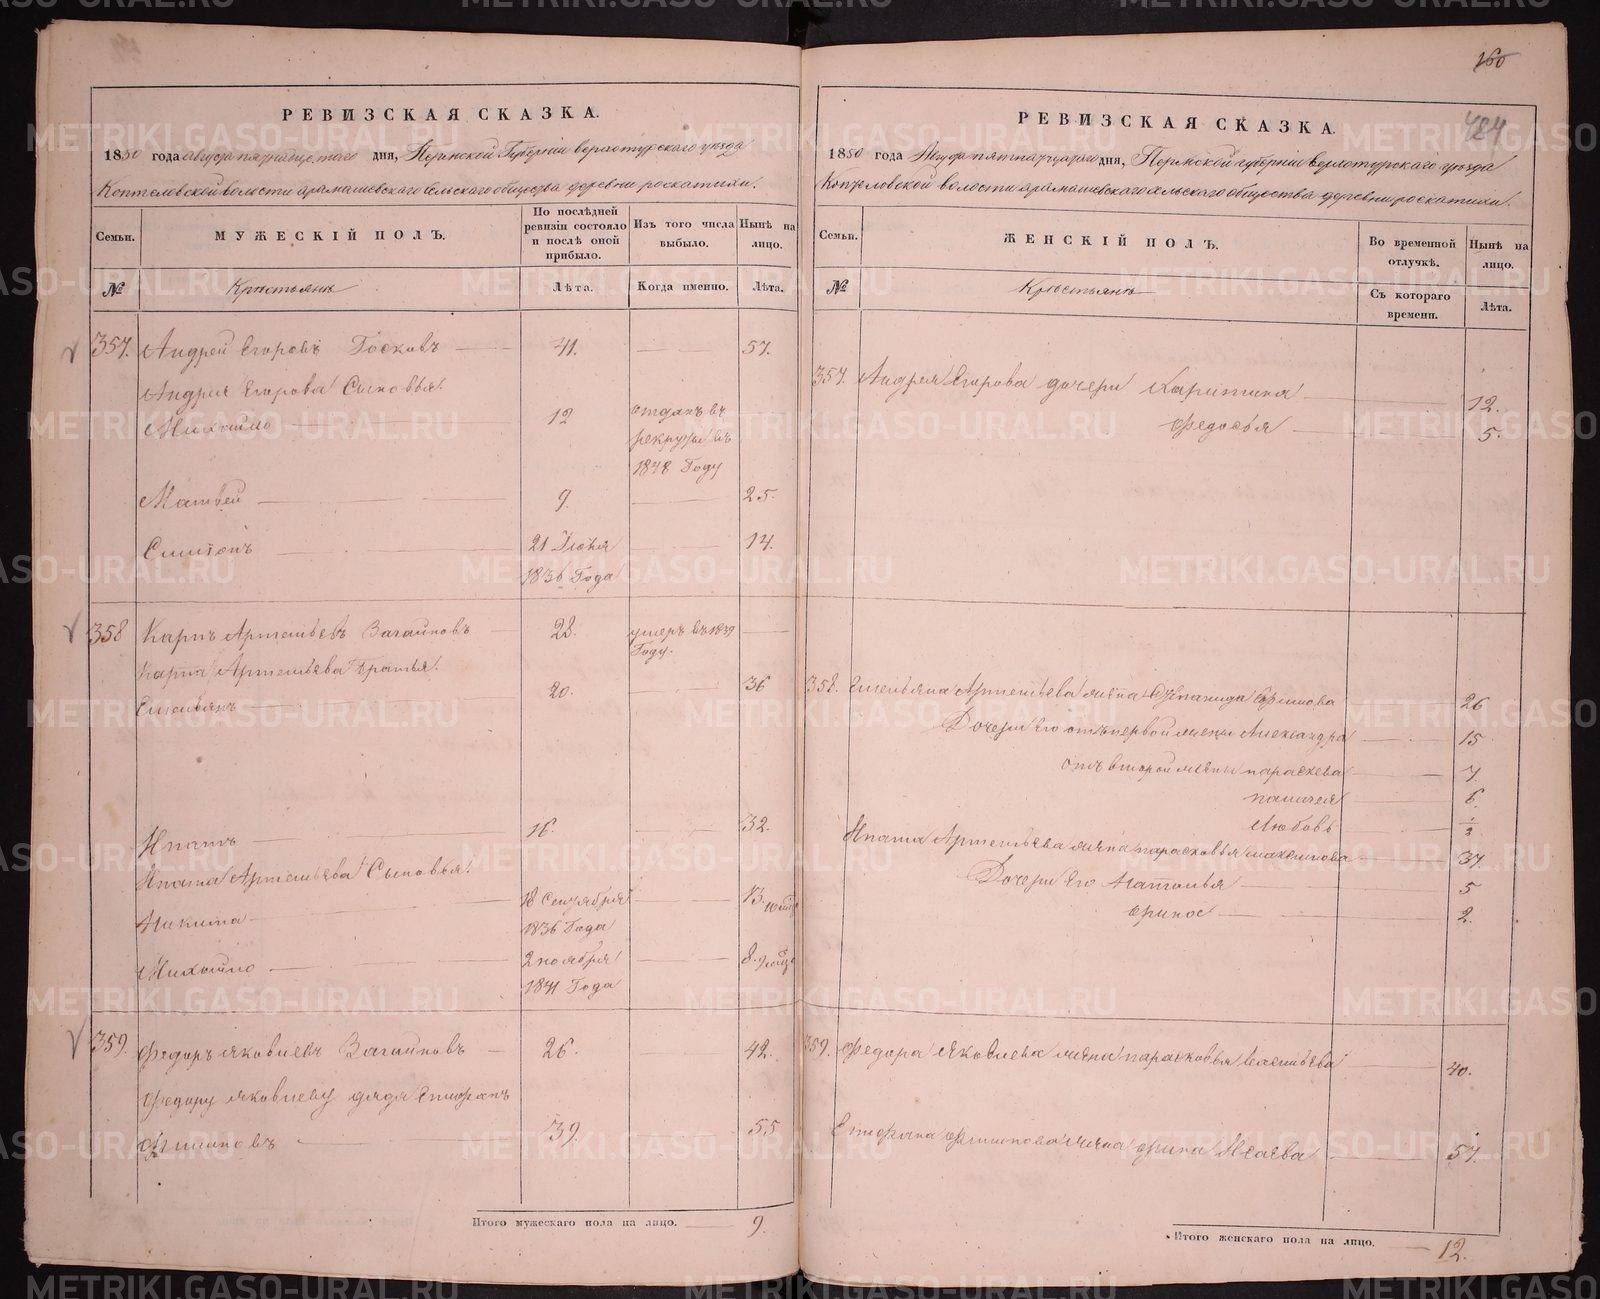 160
484
РЕВИЗСКАЯ СКАЗКА.
1850 года августа пятнадцатаго дня, Пермской Губернии верхотурскаго уезда
Коптеловской волости арамашевскаго сельскаго общества деревни роскатихи.
Семьи.
МУЖЕСКІЙ ПОЛЪ.
По послѣдней ревизіи состояло и послѣ оной прибыло.
Изъ того числа выбыло.
Нынѣ на лицо.
№
Крестьянъ
Лѣта.
Когда именно.
Лѣта.
357. Андрей Егоровъ Госковъ 41. 57.
Андрея Егорова Сыновья:
Михайло 12 отданъ въ
рекруты въ
1848 Году
Матвей 9. 25.
Симіонъ 21 Іюня 14.
1836 Года
358 Карпъ Артемьевъ Загайновъ 28. умеръ въ 1839
Году.
Карпа Артемьева братья:
Емельянъ 20. 36
Ипатъ 16. 32.
Ипата Артемьева Сыновья:
Никита 18 Сентября 13.
1836 Года
Михайло 2 ноября 8.
1841 Года
359. Федоръ яковлевъ Загайновъ 26. 42.
Федору яковлеву дядя Епифанъ
Филиповъ 39. 55
Итого мужескаго пола на лицо. 9.
РЕВИЗСКАЯ СКАЗКА.
1850 года Августа пятнатцатаго дня, Пермской губерніи верхотурскаго уезда
Коптеловской волости арамашевскаго сельскаго общества деревни роскатихи.
Семьи.
ЖЕНСКІЙ ПОЛЪ.
Во временной отлучкѣ.
Нынѣ на лицо.
№
Крестьянъ
Съ котораго времени.
Лѣта.
357. Андрея Егорова дочери Харитина 12.
Федосья 5.
358. Емельяна Артемьева жена Ефимова 26
Дочери его отъ первой жены Александра 15
отъ второй жены параскева 7.
6.
Любовь ½
Ипата Артемьева жена парасковья максимова 37
Дочери его Наталья 5
2.
359. Федора Яковлева жена парасковья васильева 40.
Епифана Филипова жена Исаева 57.
Итого женскаго пола на лицо. 12.
METRIKI.GASO-URAL.RU